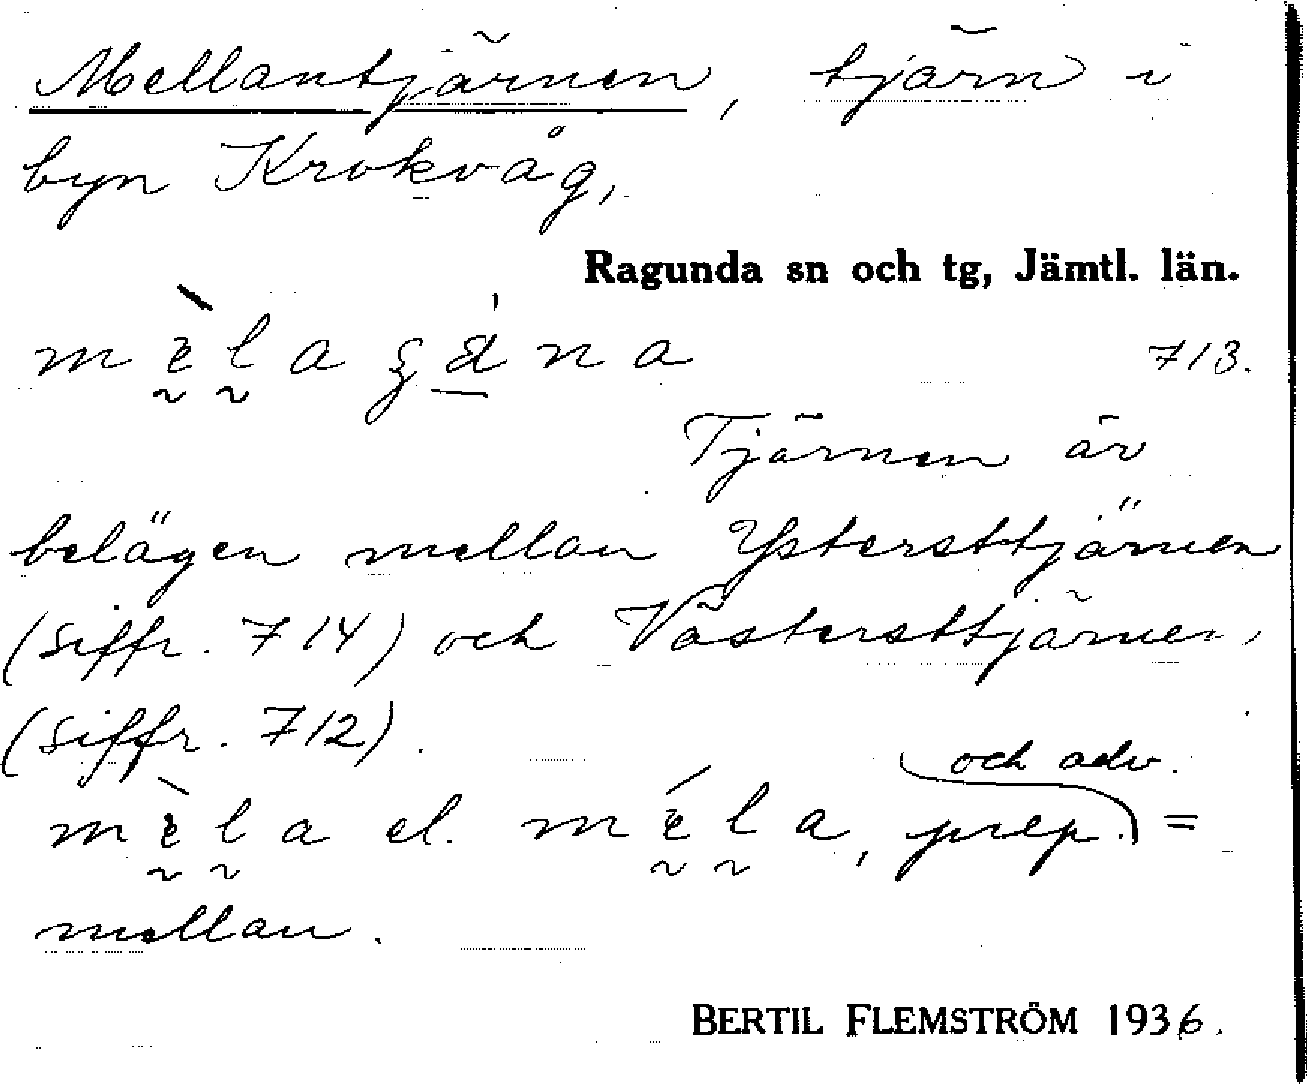 Mellantjärnen, tjärn i
byn Krokvåg,
Ragunda sn och tg, Jämtl. län.
713.
Tjärnen är
belägen mellan Ystersttjärnen
(siffr. 714) och Västersttjärnen
(siffr. 712).
mèla el. méla, prep. och adv. =
mellan.
BERTIL FLEMSTRÖM 1936.